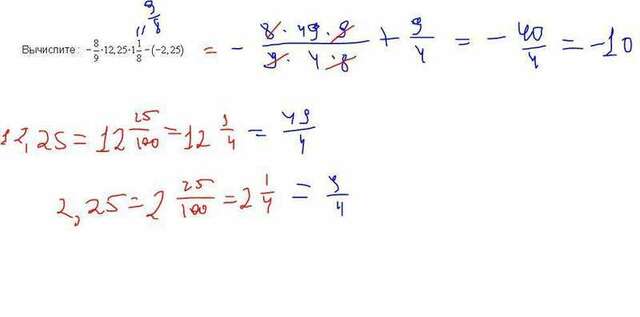 9/8
=
Вычислите : -8/9·12,25·1 1/8-(-2,25) = - 8·49·9/9·4·8 + 9/4 = - 40/4 = -10
12,25 = 12 25/100 = 12 1/4 = 49/4
2,25 = 2 25/100 = 2 1/4 = 9/4